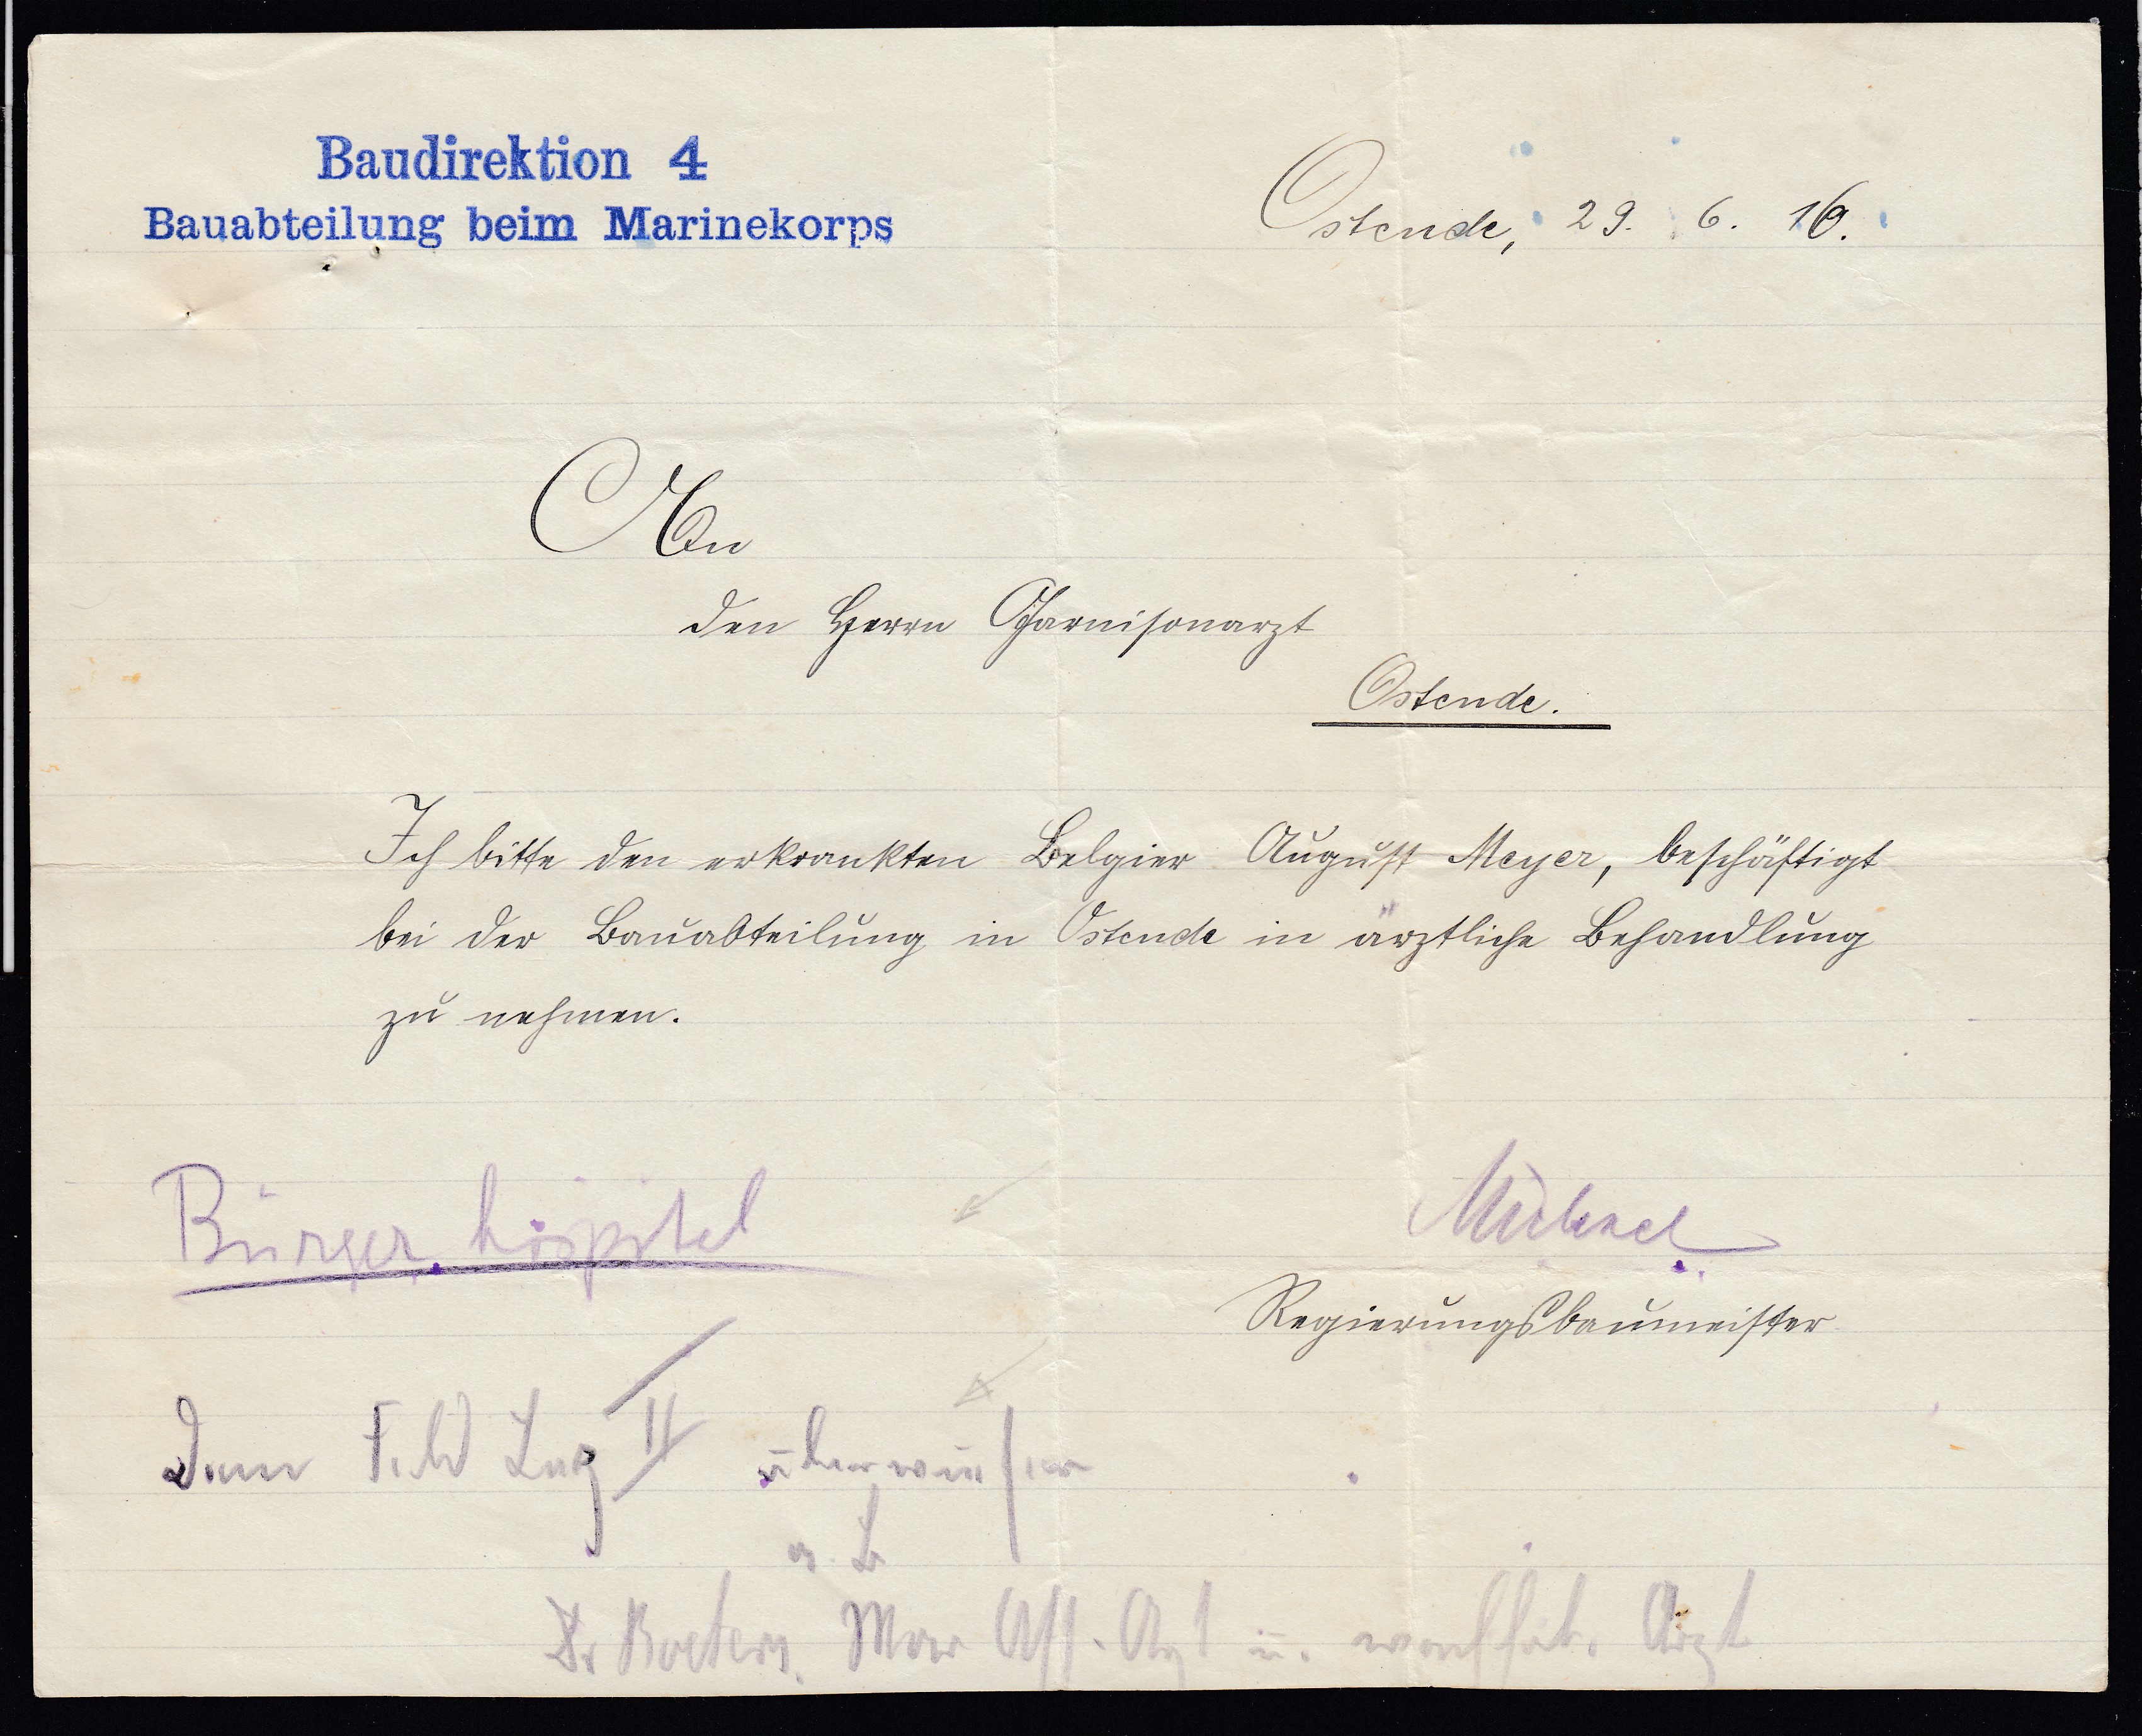 Baudirektion 4
Bauabteilung beim Marinekorps
Ostende, 29. 6. 16.
An
den Herrn Garnisonarzt
Ostende.
Ich bitte den erkrankten Belgier August Meyer, beschäftigt
bei der Bauabteilung in Ostende in ärztliche Behandlung
zu nehmen.
Bürgerhospital
Michael
Regierungsbaumeister
Dem Feld Laz II überwiesen
Dr Boeters. Mar Ass. Arzt u. wachhab. Arzt